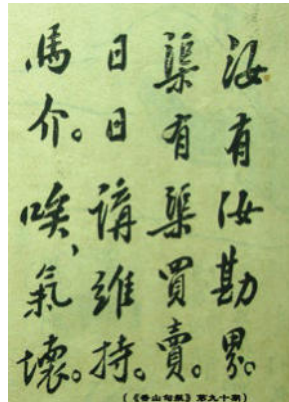 汝有汝勘界。
渠有渠買賣。
日日講維持。
馬介。唉，氣壞。
（《香山旬報》第九十期）